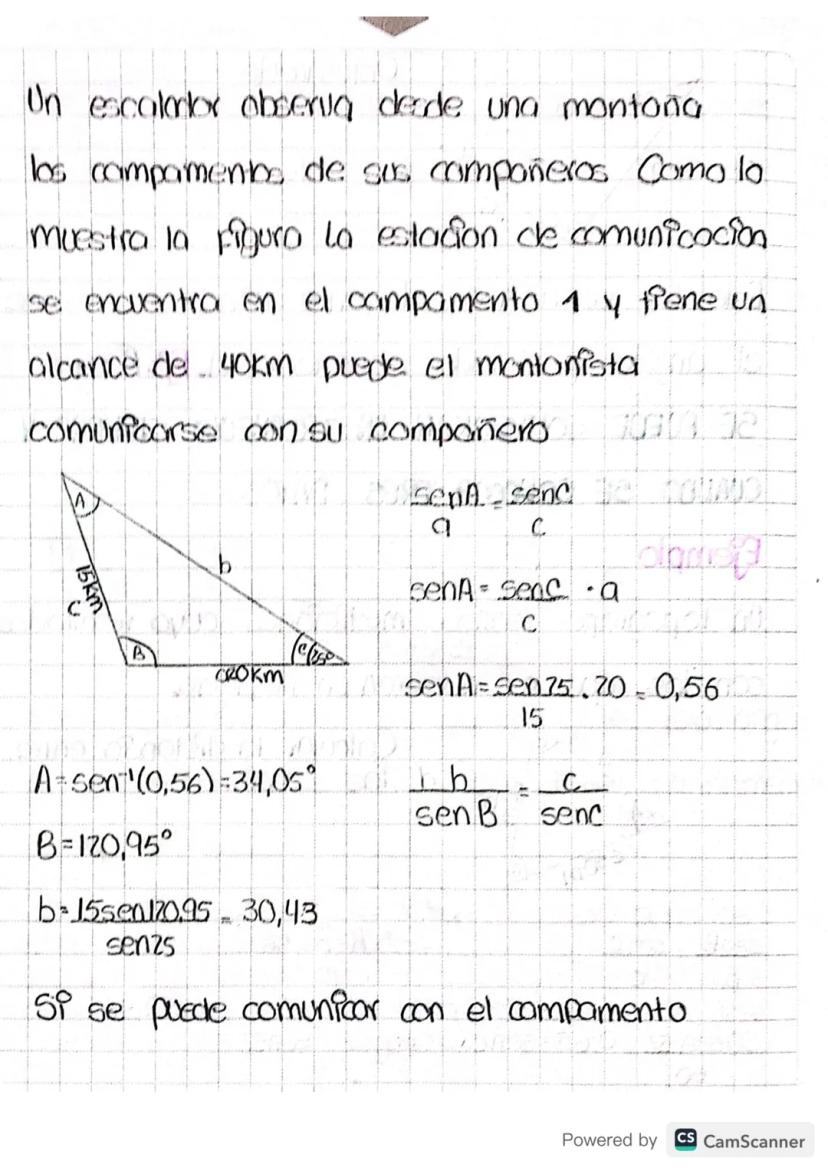 Un escalador observa desde una montaña
los campamentos de sus compañeros Como lo
muestra la figura la estación de comunicación
se encuentra en el campamento 1 y tiene un
alcance de 40Km puede el montañista
comunicarse con su compañero
A
b
15km
c
B
C 25°
a20Km
senA = senC
a c
senA = senC · a
c
senA = sen25 . 20 = 0,56
15
A = sen⁻¹(0,56) = 34,05°
b = c
senB senC
B = 120,95°
b = 15sen120,95 = 30,43
sen25
Si se puede comunicar con el campamento
Powered by CS CamScanner